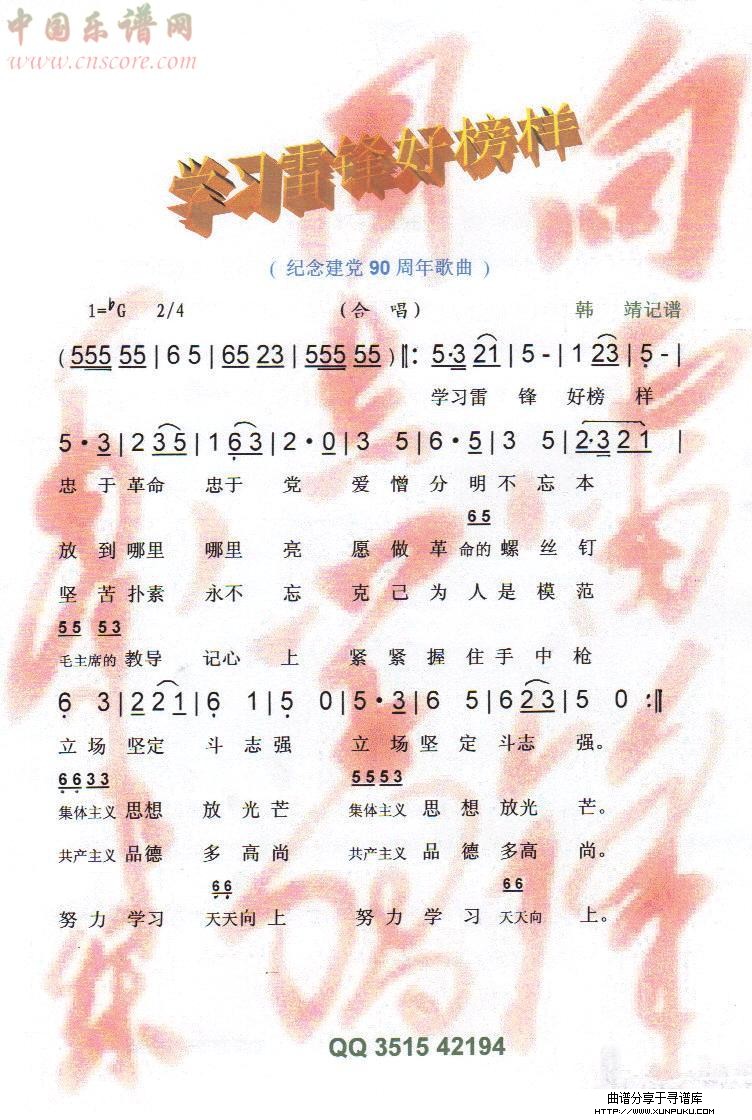 中国乐谱网
www.cnscore.com
学习雷锋好榜样
( 纪念建党 90 周年歌曲 )
1=♭G 2/4 (合 唱) 韩 靖记谱
( 555 55 | 6 5 | 65 23 | 555 55 ) ‖: 5·3 21 | 5 - | 1 23 | 5 - |
学习雷 锋 好榜 样
5 · 3 | 2 35 | 1 63 | 2 · 0 | 3 5 | 6 · 5 | 3 5 | 2·3 21 |
忠 于 革命 忠于 党 爱 憎 分 明 不 忘 本
65
放 到 哪里 哪里 亮 愿 做 革 命的 螺 丝 钉
坚 苦 扑素 永不 忘 克 己 为 人 是 模 范
55 53
毛主席的 教导 记心 上 紧 紧 握 住 手 中 枪
6 3 | 2 2 1 | 6 1 | 5 0 | 5 · 3 | 6 5 | 6 23 | 5 0 :‖
立 场 坚定 斗 志 强 立 场 坚 定 斗志 强。
6633 5553
集体主义 思想 放 光 芒 集体主义 思 想 放光 芒。
共产主义 品德 多 高 尚 共产主义 品 德 多高 尚。
66 66
努 力 学习 天天向 上 努 力 学 习 天天向 上。
QQ 3515 42194
曲谱分享于寻谱库
HTTP://WWW.XUNPUKU.COM